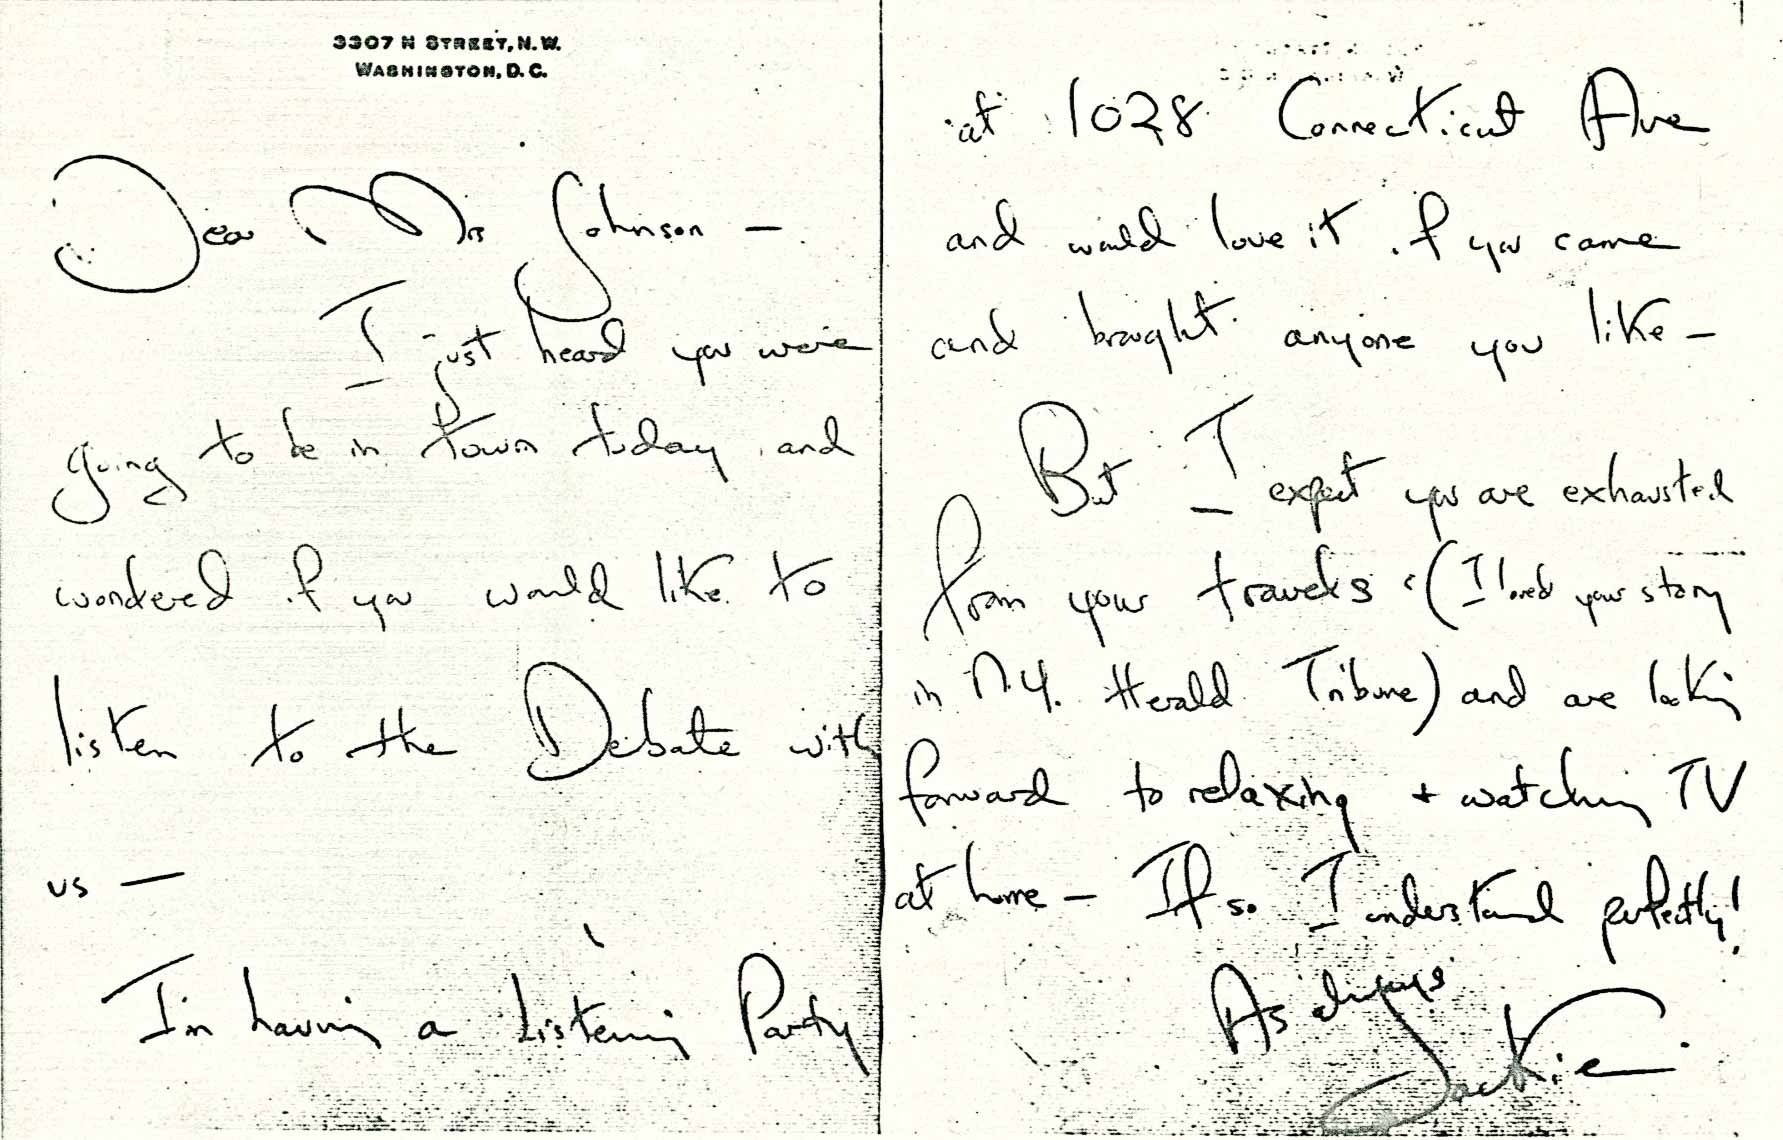 3307 N STREET, N.W.
WASHINGTON, D.C.
Dear Mrs Johnson —
I just heard you were
going to be in town today and
wondered if you would like to
listen to the Debate with
us —
I'm having a Listening Party
at 1028 Connecticut Ave
and would love it if you came
and brought anyone you like —
But I expect you are exhausted
from your travels (I loved your story
in N.Y. Herald Tribune) and are looking
forward to relaxing + watching TV
at home — If so I understand perfectly!
As always
Jackie